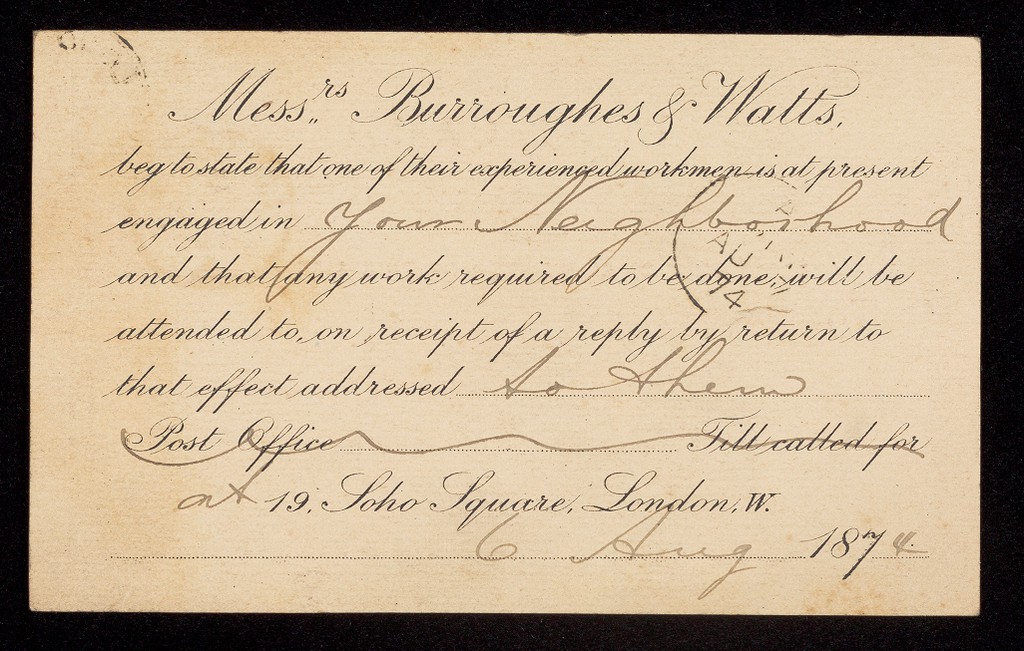 Mess,,rs Burroughes & Watts,
beg to state that one of their experienced workmen is at present
engaged in Your Neighborhood
and that any work required to be done, will be
attended to, on receipt of a reply by return to
that effect addressed to them
Post Office Till called for
at 19, Soho Square, London, W.
6 Aug 1874